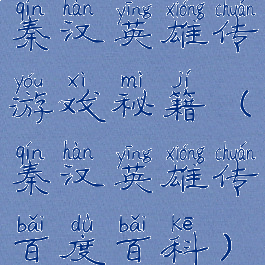 qín hàn yīng xióng chuán
秦汉英雄传
yóu xì mì jí
游戏秘籍（
qín hàn yīng xióng chuán
秦汉英雄传
bǎi dù bǎi kē
百度百科）